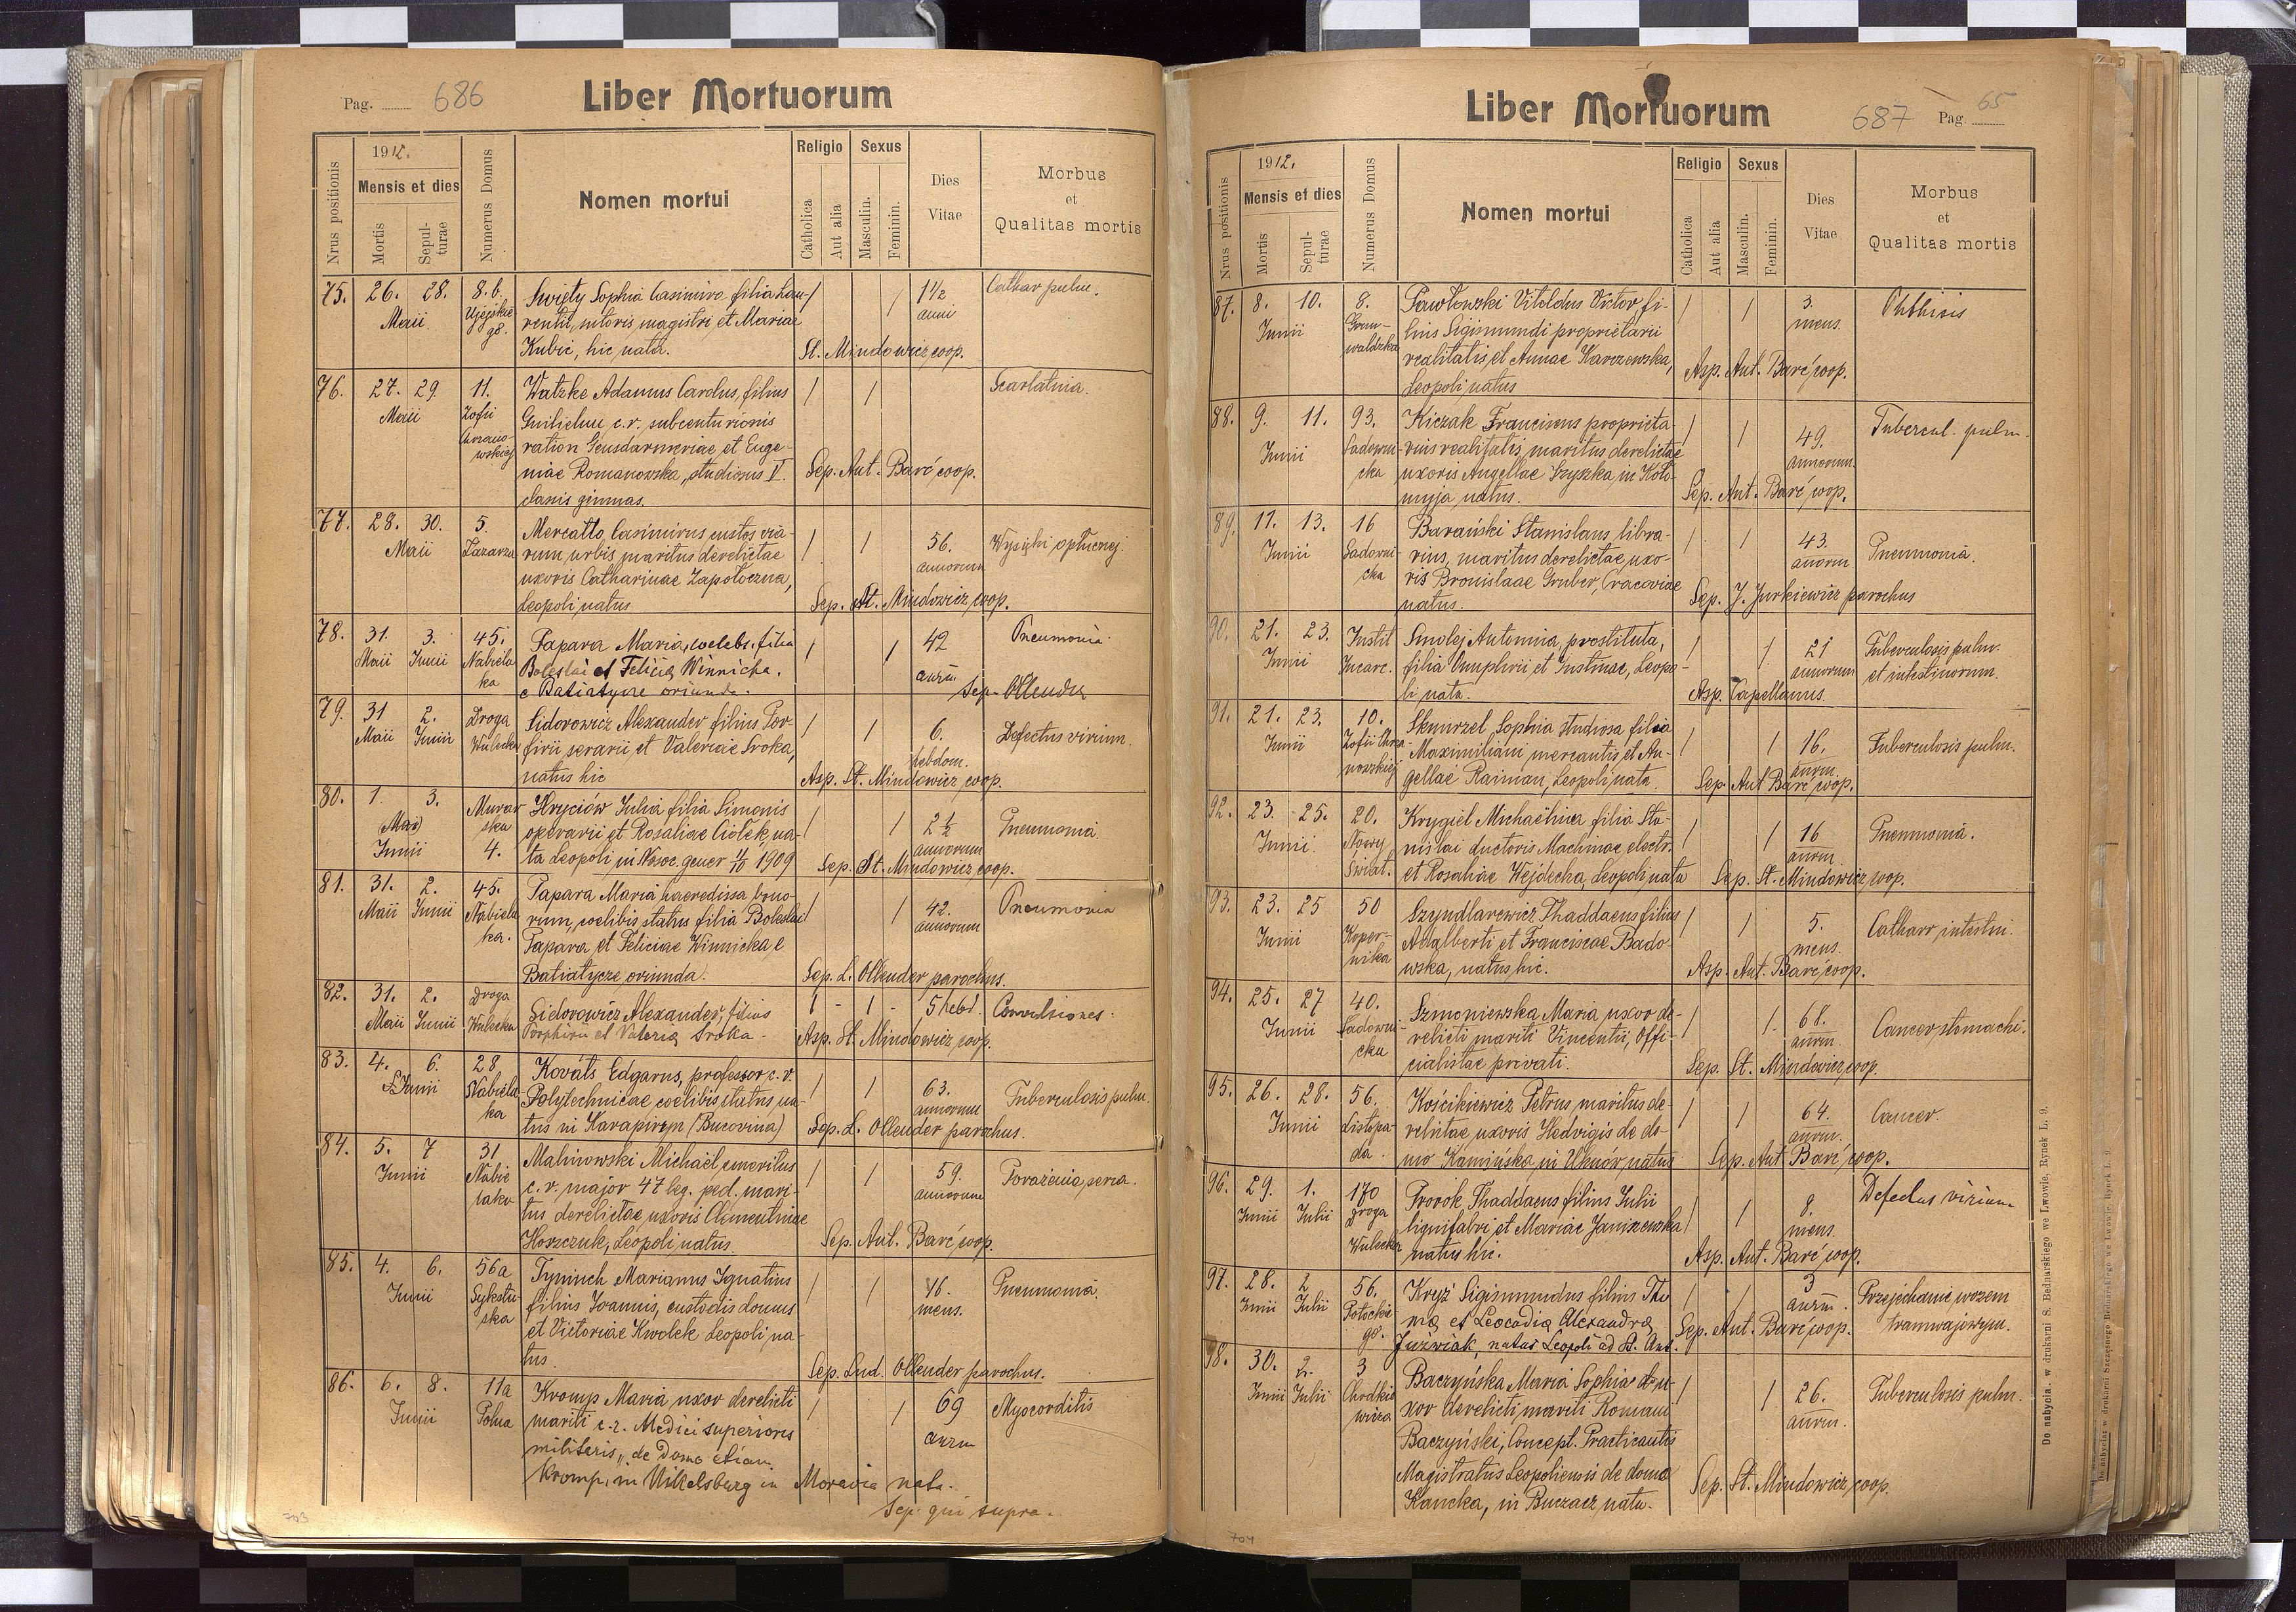 Pag. 686
Liber Mortuorum
Nrus positionis
1912.
Mensis et dies
Mortis
Sepulturae
Numerus Domus
Nomen mortui
Religio
Catholica
Aut alia
Sexus
Masculin.
Feminin.
Dies Vitae
Morbus et Qualitas mortis
75. 26. 28. Maii 8.b.
Święty Sophia Casimira filia Lau-
rentii, sutoris magistri et Mariae
Kubic, hic nata.
1½ anni
Cathar pulm.
St. Mindowicz coop.
76. 27. 29. Maii 11. Zofii
Watzke Adamus Carolus, filius
Guilielmi c.r. subcenturionis
ration Gensdarmeriae et Euge-
niae Romanowska, studiosus V.
clasis gimnas.
Scarlatina.
Sep. Ant. Barć coop.
77. 28. 30. Maii 5. Łazarza
Mercatto Casimirus custos via-
rum urbis, maritus derelictae
uxoris Catharinae Zapotoczna,
Leopoli natus
56. annorum
Wysięki opłucnej.
Sep. St. Mindowicz coop.
78. 31. Maii 3. Junii 45. Nabiela
ka
Papara Maria, coelebs, filia
Boleslai et Felicia Winnicka.
e Batiatycze oriunda.
42 anrm
Pneumonia
Sep. Ollender
79. 31 Maii 2. Junii Droga Wulecka
Sidorowicz Alexander filius Por
firii serarii et Valeriae Sroka,
natus hic
6. hebdom.
Defectus virium.
Asp. St. Mindowicz coop.
80. 1. 3. (Maii) Junii Murar
ska 4.
Hryciów Julia filia Simonis
operarii et Rosaliae Ciołek, na-
ta Leopoli in Nosoc. gener 1909
2½ annorum
Pneumonia
Sep. St. Mindowicz coop.
81. 31. Maii 2. Junii 45. Nabiela
ka.
Papara Maria haeredissa bono-
rum, coelibis status filia Boleslai
Papara et Feliciae Winnicka e
Batiatycze oriunda.
42. annorum
Pneumonia
Sep. L. Ollender parochus.
82. 31. Maii 2. Junii Droga Wulecka
Sidorowicz Alexander, filius
Porphirii et Valeria Sroka.
5 hebd.
Convulsiones.
Asp. St. Mindowicz coop.
83. 4. 6. Junii 28 Nabiela
ka
Kováts Edgarus, professor c.r.
Polytechnicae coelibis status, na-
tus in (Bucovina)
63. annorum
Tuberculosis pulm.
Sep. L. Ollender parochus.
84. 5. 7 Junii 31
Malinowski Michaël emeritus
c.r. major 47 leg. ped. mari-
tus derelictae uxoris Clementinae
Hoszczuk, Leopoli natus
59. annorum
Porażenie serca.
Sep. Ant. Barć coop.
85. 4. 6. Junii 56a Sykstu-
ska
Tyniuch Marianus Ignatius
filius Joannis, custodis domus
et Victoriae Kwolek Leopoli na-
tus.
mens.
Pneumonia
Sep. Lud. Ollender parochus.
86. 6. 8. Junii 11a Polna
Kromp Maria uxor derelicti
mariti c.r. Medici superioris
militaris, de Domo etiam
Kromp, in Nikelsburg in Moravia nata.
69 anrm
Myocorditis
Sep. qui supra.
703
Liber Mortuorum
687 Pag. 65
Nrus positionis
1912.
Mensis et dies
Mortis
Sepulturae
Numerus Domus
Nomen mortui
Religio
Catholica
Aut alia
Sexus
Masculin.
Feminin.
Dies Vitae
Morbus et Qualitas mortis
87. 8. 10. Junii 8. Grun-
waldzka
Pawłowski Vitoldus Victor, fi-
lius Sigismundi proprietarii
realitatis, et Annae Karczewska,
Leopoli natus
3. mens.
Phthisis
Asp. Ant. Barć coop.
88. 9. 11. Junii 93. Sadowni
cka
Kiczak Franciscus proprieta
rius realitatis, maritus derelictae
uxoris Angellae Szyszka, in Koło
myja natus.
49. annorum.
Tubercul. pulm.
Sep. Ant. Barć coop.
89. 11. 13. Junii 16 Sadowni-
cka
Barański Stanislaus libra-
rius, maritus derelictae, uxo-
ris Bronislaae Gruber, Cracoviae
natus.
43. anorm
Pneumonia.
Sep. J. Jurkiewicz parochus
90. 21. 23. Junii Instit Incarc.
Smolej Antonina, prostituta,
filia Onuphrii et Justinae, Leopo-
li nata.
21 annorum
Tuberculosis pulm.
et intestinorum.
Asp. Capellanus.
91. 21. 23. Junii 10. Zofii Chrza-
nowskiej
Skmurzel Sophia studiosa filia
Maximiliani mercantis, et An-
gellae Raiman, Leopoli nata
16. anrm.
Tuberculosis pulm.
Sep. Ant Barć coop.
92. 23. 25. Junii. 20. Nowy Świat.
Krygiel Michaëlina filia Sta-
nislai ductoris Machinae electr.
et Rosaliae Wejdecha, Leopoli nata
16 anrm.
Pneumonia.
Sep. St. Mindowicz coop.
93. 23. 25 Junii 50 Koper-
nika
Szyndlarewicz Thaddaeus filius
Adalberti et Franciscae Bado-
wska, natus hic.
5. mens.
Catharr intestin.
Asp. Ant. Barć coop.
94. 25. 27 Junii 40. Sadowni-
cka
Szmoniewska Maria uxor de-
relicti mariti Vincentii, Offi-
cialistae privati.
68. anrm.
Cancer stomachi.
Sep. St. Mindowicz coop.
95. 26. 28. Junii 56. Listopa-
da.
Kościkiewicz Petrus, maritus de-
relictae uxoris Hedvigis de do-
mo Kamińska, in Uhnów natus
64. anrm.
Cancer.
Sep. Ant. Barć coop.
96. 29. Junii 1. Julii 170 Droga Wulecka
Prorok Thaddaeus filius Julii
lignifabri et Mariae Janiszewska
natus hic.
8. mens.
Defectus virium
Asp. Ant. Barć coop.
97. 28. Junii 2 Julii 56. Potockie
go.
Kryż Sigismundus filius Tho
ma et Leocadia Alexandra
Juzwiak, natus Leopoli ad St. Ant.
3 anrm.
Przejechanie wozem
tramwajowym.
Sep. Ant. Barć coop.
98. 30. Junii 2. Julii 3 Chodkie
wicza
Baczyńska Maria Sophia d. u-
xor derelicti mariti Romani
Baczyński, Concept. Practicantis
Magistratus Leopoliensis de domo
Kancka, in Buczacz nata.
26. anrm.
Tuberculosis pulm.
Sep. St. Mindowicz coop.
704
Do nabycia. w drukarni S. Bednarskiego we Lwowie, Rynek L. 9.